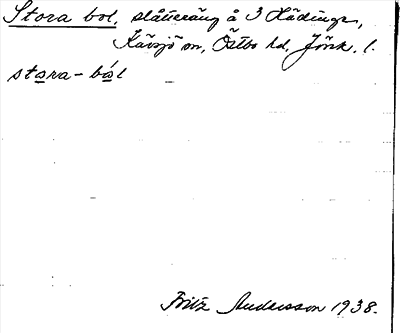 Stora bol, slåtteräng å 3 Hädinge,
Kävsjö sn, Östbo hd, Jönk. l.
stara-bål
Fritz Andersson 1938.